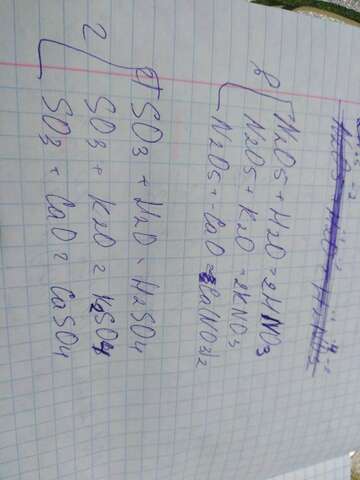 в) N2O5 + H2O = 2HNO3
N2O5 + K2O = 2KNO3
N2O5 + CaO = Ca(NO3)2
г) SO3 + H2O = H2SO4
SO3 + K2O = K2SO4
SO3 + CaO = CaSO4
2